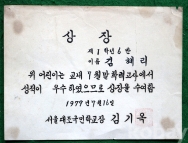 상장
제 1 학년 6 반
이름 김혜리
위 어린이는 교내 9월말 학력고사에서
성적이 우수하였으므로 상장을 수여함
1979년 9월 16일
서울대조국민학교장 김기옥